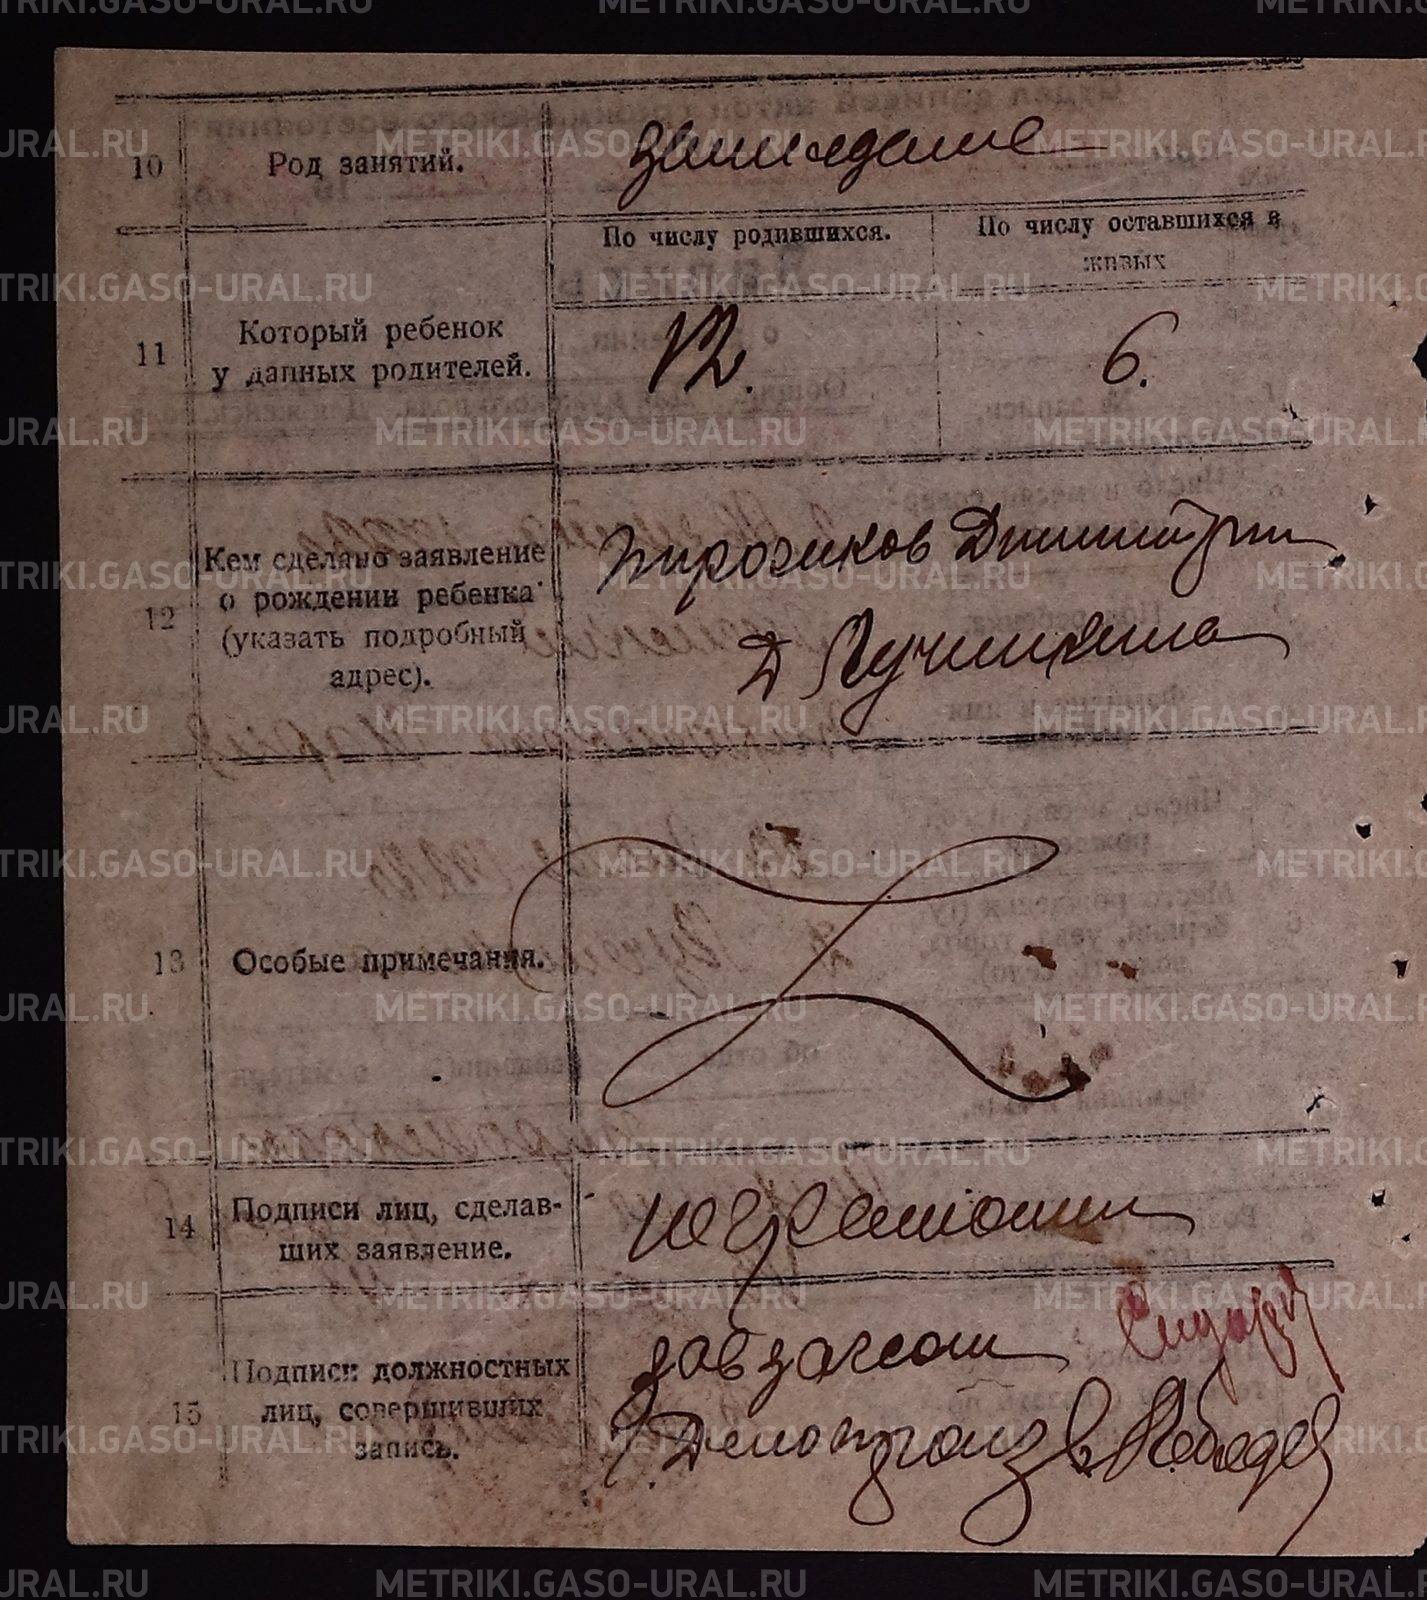 10 Род занятий. земледелие
По числу родившихся. По числу оставшихся в живых
11 Который ребенок
у данных родителей. 12. 6.
Кем сделано заявление Пирожков Димитрий
12 о рождении ребенка
(указать подробный
адрес).
13 Особые примечания.
14 Подписи лиц, сделав- неграмотный
ших заявление.
завзагсом
15 Подписи должностных
лиц, совершивших
запись.
Делопроизв
METRIKI.GASO-URAL.RU